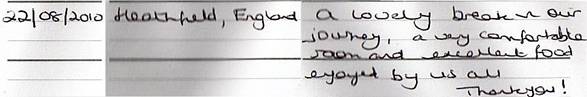 22/08/2010 Heathfield, England a lovely break in our
journey, a very comfortable
room and excellent food
enjoyed by us all
Thankyou!